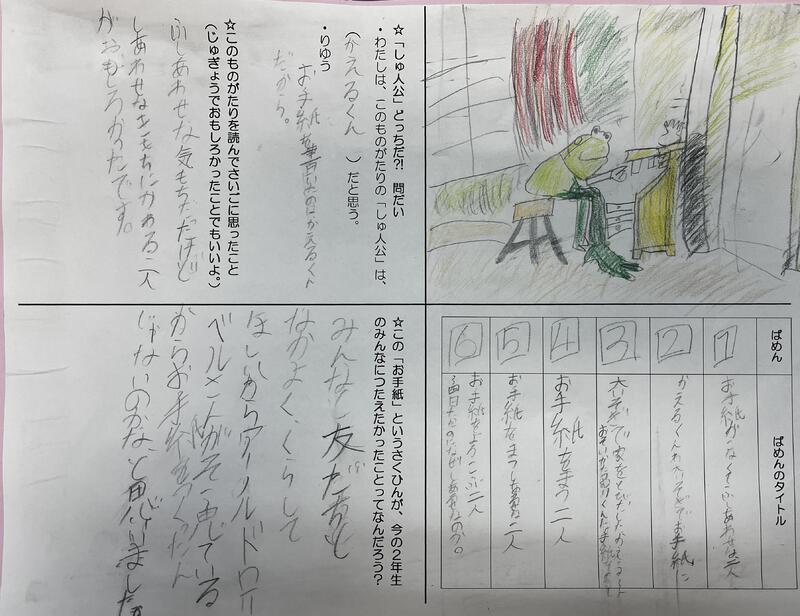 ばめん
ばめんのタイトル
1
お手紙がなくてふしあわせな二人
2
かえるくん
お手紙
3
大いそぎで家をとびだした
4
お手紙をまつ二人
5
お手紙をまつしあわせな二人
6
お手紙をよろこぶ二人
☆「しゅ人公」どっちだ?! 問だい
・わたしは、このものがたりの「しゅ人公」は、
(かえるくん)だと思う。
・りゆう
お手紙を書いたのはかえるくん
だから。
☆このものがたりを読んでさいごに思ったこと
(じゅぎょうでおもしろかったことでもいいよ。)
ふしあわせな気もちだけど
しあわせなきもちにかわる二人
がおもしろかったです。
☆この「お手紙」というさくひんが、今の2年生
のみんなにつたえたかったことってなんだろう?
みんなに友だちと
なかよく、くらして
ほしいからアーノルドロー
ベルさんが
からお手紙をつくったん
じゃないのかな、と思いました。